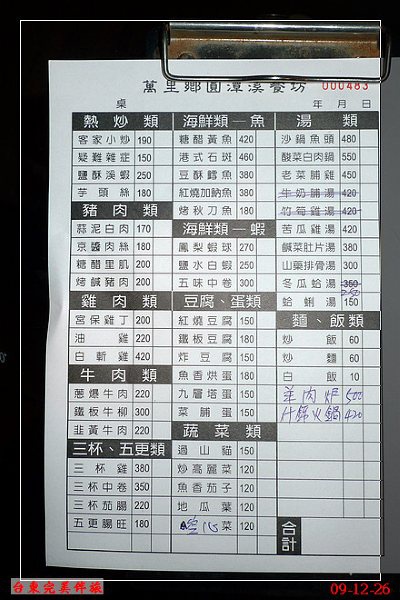 萬里鄉圓潭溪餐坊
000483
桌 年 月 日
熱炒類
客家小炒 190
疑難雜症 150
鹽酥溪蝦 250
芋頭絲 180
豬肉類
蒜泥白肉 170
京醬肉絲 180
糖醋里肌 200
烤鹹豬肉 200
雞肉類
宮保雞丁 200
油雞 220
白斬雞 420
牛肉類
蔥爆牛肉 220
鐵板牛柳 300
韭黃牛肉 220
三杯、五更類
三杯雞 380
三杯中卷 350
三杯茄腸 220
五更腸旺 180
海鮮類—魚
糖醋黃魚 420
港式石斑 460
豆酥鱈魚 380
紅燒加魶魚 380
烤秋刀魚 180
海鮮類—蝦
鳳梨蝦球 270
鹽水白蝦 250
五味中卷 300
豆腐、蛋類
紅燒豆腐 150
鐵板豆腐 180
炸豆腐 150
魚香烘蛋 180
九層塔蛋 150
菜脯蛋 150
蔬菜類
過山貓 150
炒高麗菜 120
魚香茄子 120
地瓜葉 120
空心菜 120
湯類
沙鍋魚頭 480
酸菜白肉鍋 550
老菜脯雞 450
牛奶脯湯 420
竹筍雞湯 420
苦瓜雞湯 420
鹹菜肚片湯 380
山藥排骨湯 300
冬瓜蛤湯 350
蛤蜊湯 150
麵、飯類
炒飯 60
炒麵 60
白飯 10
羊肉爐 500
什錦火鍋 420
合計
台東完美伴旅
09-12-26